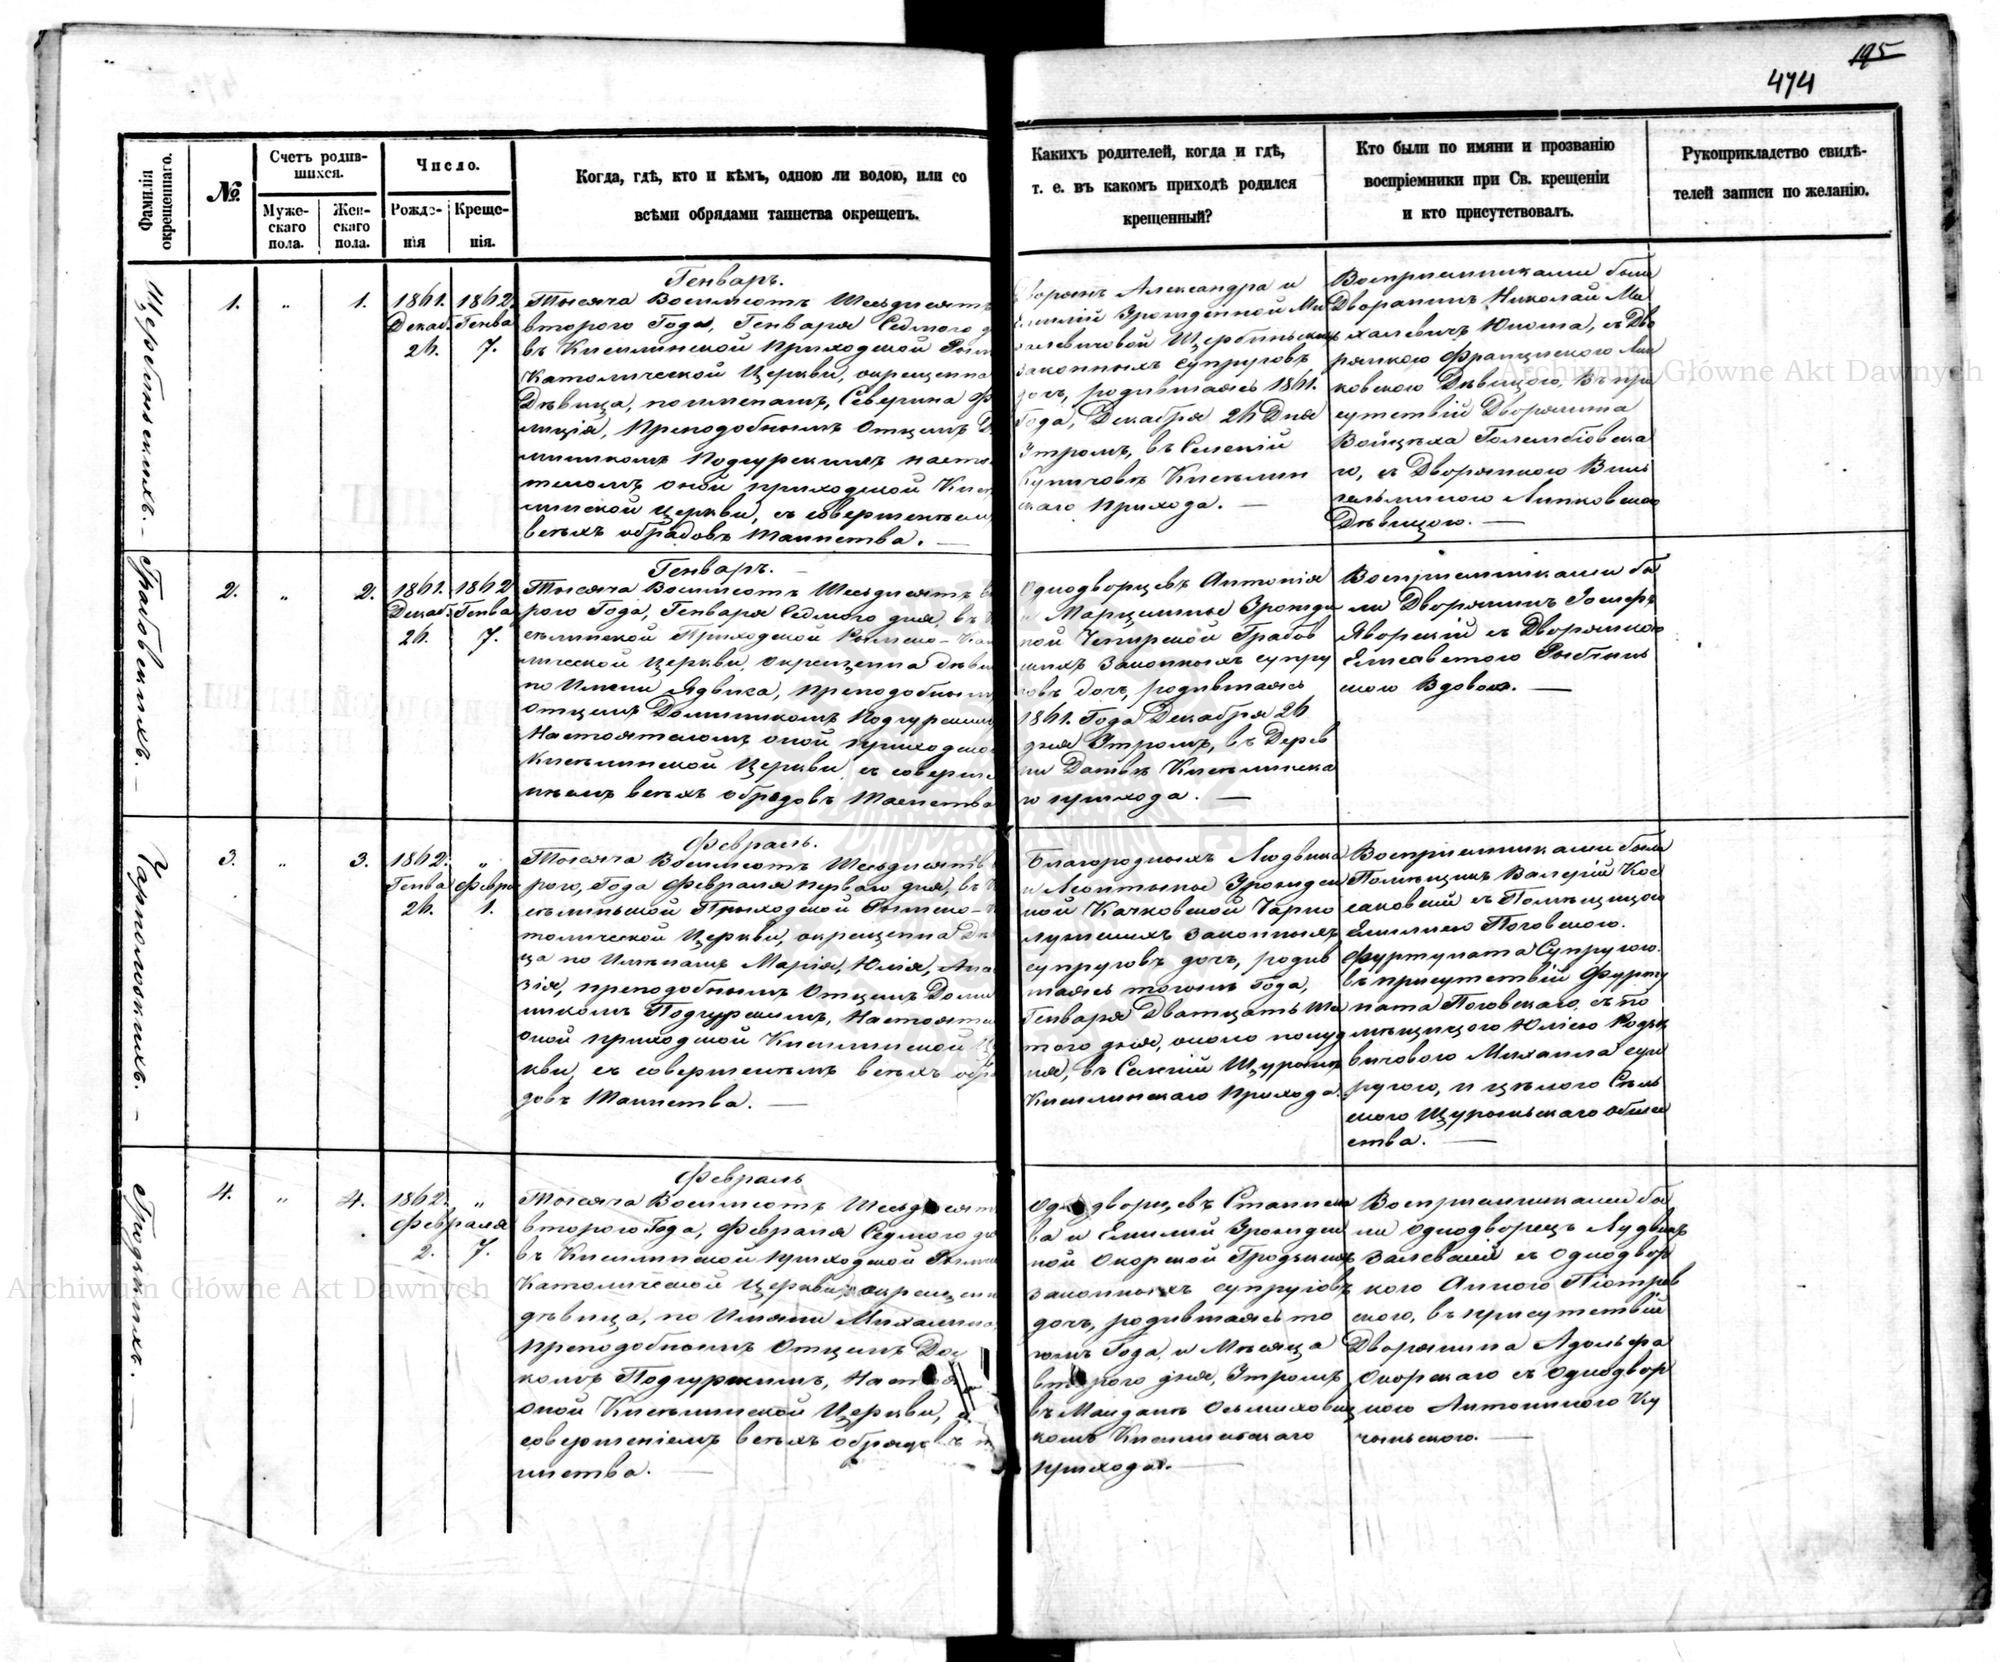 195
474
Фамилія окрещеннаго.
№.
Счетъ родив-
шихся.
Муже-
скаго
пола.
Жен-
скаго
пола.
Число.
Рожде-
нія
Креще-
нія.
Когда, гдѣ, кто и кѣмъ, одною ли водою, или со
всѣми обрядами таинства окрещенъ.
Каких​ъ родителей, когда и гдѣ,
т. е. въ какомъ приходѣ родился
крещенный?
Кто были по имяни и прозванію
воспріемники при Св. крещеніи
и кто присутствовалъ.
Рукоприкладство свидѣ-
телей записи по желанію.
Щербинскихъ.
1. " 1.
1861. 1862.
Декаб. Генва
26. 7.
Генварь.
Тысяча Восимсотъ Шесьдисятъ
второго Года, Генваря Седмого
въ Кисилинской Приходской Рым
Католической Церкви, окрещенна
Дѣвица, по именамъ, Северина Ф
лиція, Преподобнымъ Отцемъ Д
миникомъ Подгурскимъ насто
телемъ оной приходской Кис
линской Церкви, съ совершеніем
всѣхъ обрадовъ Таинства. —
Дворянъ Александра и
Емилій Урожденной Ми
халевичовой Щербинскихъ
законныхъ супруговъ
дочь, родившаясь 1861.
Года, Декабря 26 Дня
Утромъ, въ Селеній
Купичовѣ Кисѣлин
скаго Прихода. —
Восприемниками были
Дворянинъ Николай Ми
халевичъ Юноша, съ Дво
рянкою Францискою Лип
ковскою Дѣвицою, въ при
сутствій Дворянина
Войцѣха Голембіовска
го, съ Дворянкою Виль
гельминою Липковскою
Дѣвицою. —
Грабовскихъ. —
2. " 2.
1861. 1862
Декаб. Генва
26. 7.
Генварь. —
Тысяча Восимсотъ Шесьдисятъ в
рого Года, Генваря Седмого дня, въ К
сѣлинской Приходской Рымско-Ка
лической Церкви, окрещенна дѣви
по Имени Ядвига, Преподобным
Отцемъ Доминикомъ Подгурским
Настоятелемъ оной приходско
Кисѣлинской Церкви, съ соверше
ніемъ всѣхъ обрядовъ Таинства
Однодворцевъ Антонія
и Марцеллины Урожде
ной Грабов
скихъ Законныхъ супру
говъ дочь, родившаясь
1861. Года Декабря 26
дня Утромъ, въ Дерев
ни Кисѣлинска
го прихода. —
Восприемниками бы
ли Дворянинъ Іосифъ
Яворскій съ Дворянкою
Елисаветою
скою Вдовою. —
Чарнолозкихъ. —
3. " 3.
1862. "
Генва Февра
26. 1.
Февраль.
Тысяча Восимсотъ Шесьдисятъ в
рого, Года Февраля перваго дня, въ К
сѣлинской Приходской Рымско-К
толической Церкви, окрещенна Дѣ
ца по Имѣнамъ Марія, Юлія,
зія, преподобнымъ Отцемъ Доми
никомъ Подгурскимъ, Настояте
оной приходской Кисилинской Ц
кви, съ совершеніемъ всѣхъ обря
довъ Таинства. —
Благородныхъ Людвика
и Леонтыны Урожден
ной Качковской Чарно
лузскихъ законныхъ
супруговъ дочь, родив
шаясь тогожъ Года,
Генваря Дватцать ше
того дня, около полуд
ня, въ Селеній Щуронѣ
Кисилинскаго Прихода.
Восприемниками были
Помѣщикъ Валерій Кос
саковскій съ Помѣщицою
Емилиею Поговскою.
Фуртуната Супругою.
въ присутствій Фурту
ната Поговскаго, съ по
мѣщицою Юліею Родзѣ
вичовою Михаила суп
ругою, и цѣлого Сѣль
ского Щуронского обще
ства. —
Гродзкихъ. —
4. " 4.
1862. "
Февраля
2. 7.
Февраль
Тысяча Восимсотъ Шесьдисят
второго Года, Февраля Седмого дн
въ Кисилинской приходской Рымс
Католической Церкви, окрещенн
дѣвица, по Имяни Михалина,
преподобнымъ Отцемъ Дом
комъ Подгурскимъ, Настоя
оной Кисѣлинской Церкви, с
совершеніемъ всѣхъ обрядовъ т
инства. —
Однодворцевъ Станисла
ва и Емилій Урожден
ной Окорской Гродзкихъ
законныхъ супруговъ
дочь, родившаясь то
гожъ Года и Мѣсяца
второго дня, Утромъ
въ Майданѣ Осьмихови
комъ Кисилинскаго
прихода. —
Восприемниками бы
ли Однодворецъ Лудвикъ
Залевскій съ Однодвор
кою Анною Піотров
скою, въ присутствій
Дворянина Адольфа
Окорскаго съ Однодвор
кою Антониною Ку
чинскою. —
Archiwum Główne Akt Dawnych
Archiwum Główne Akt Dawnych